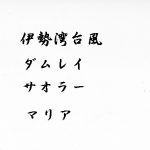 伊勢湾台風
ダムレイ
サオラー
マリア